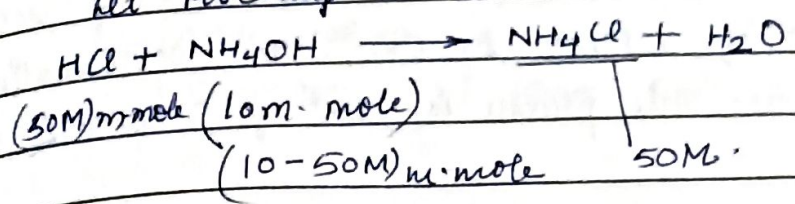 HCl + NH4OH ⟶ NH4Cl + H2O
(50M)m·mole (10m·mole)
(10-50M)m·mole 50M.